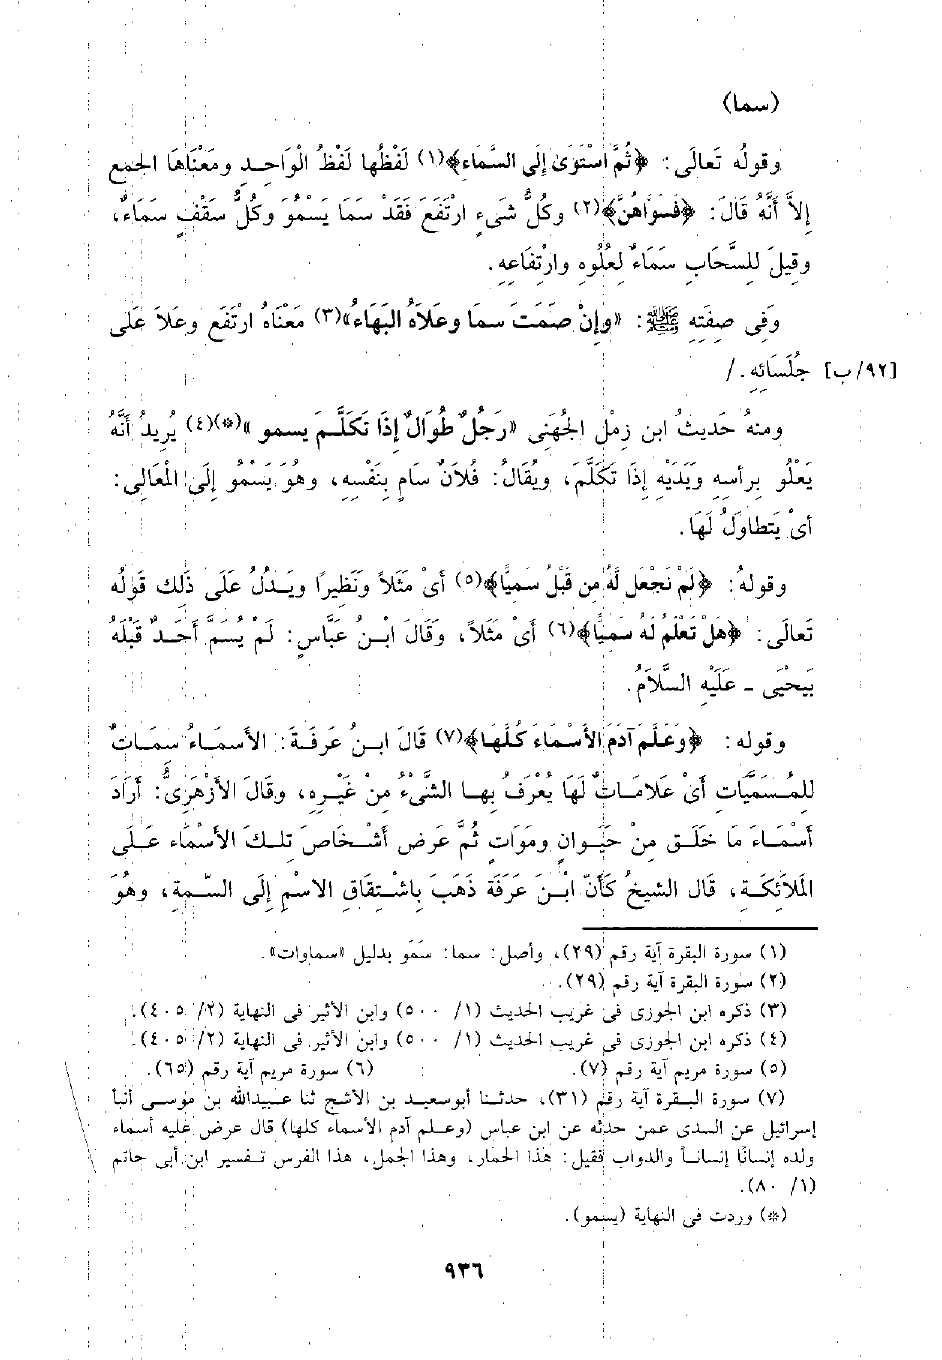 (سما)
وقولُه تَعالَى: ﴿ثُمَّ اسْتَوَىٰ إِلَى السَّمَاءِ﴾(١) لَفْظُها لَفْظُ الْوَاحِدِ ومَعْنَاهَا الجمع
إلاَّ أنَّهُ قَالَ: ﴿فَسَوَّاهُنَّ﴾(٢) وكُلُّ شَىءٍ ارْتَفَعَ فَقَدْ سَمَا يَسْمُوَ وكُلُّ سَقْفٍ سَمَاءٌ،
وقيلَ للسَّحَابِ سَمَاءٌ لعُلُوِه وارْتِفَاعِه.
وَفِى صِفَتِهِ ﷺ: «وإنْ صَمَتَ سما وعَلاَهُ البَهَاءُ»(٣) مَعْنَاهُ ارْتَفَع وعَلاَ عَلَى
[٩٢/ب] جُلَسَائِهِ. /
ومنهُ حَديثُ ابن زملٍ الجُهَنِى «رَجُلٌ طُوَالٌ إذَا تَكَلَّمَ يسمو»(*)(٤) يُريدُ أنَّهُ
يَعْلُو بِرأسِهِ وَيَدَيْهِ إذَا تَكَلَّمَ، ويُقَالُ: فُلاَنٌ سَامٍ بِنَفْسِهِ، وهُوَ يَسْمُو إلَى الْمَعَالِى:
أىْ يَتَطاوَلُ لَهَا.
وقولهُ: ﴿لَمْ نَجْعَل لَّهُ مِن قَبْلُ سَمِيًّا﴾(٥) أىْ مَثَلاً ونَظِيرًا ويَدُلُ عَلَى ذَلِك قَوْلُه
تَعالَى: ﴿هَلْ تَعْلَمُ لَهُ سَمِيًّا﴾(٦) أىْ مَثَلاً، وَقَالَ ابْنُ عَبَّاسٍ: لَمْ يُسَمَّ أحَدٌ قَبْلَهُ
بَيحْيَى - عَلَيْهِ السَّلاَمُ.
وقوله: ﴿وَعَلَّمَ آدَمَ الأَسْمَاءَ كُلَّهَا﴾(٧) قَالَ ابنُ عَرفَةَ: الأسماءُ سمَاتٌ
للمُسَمَّيَات أىْ عَلامَاتٌ لَهَا يُعْرَفُ بِها الشَّىْءُ مِنْ غَيْرِهِ، وقَالَ الأزْهَرِىُّ: أرَادَ
أسْمَاءَ مَا خَلَق مِنْ حَيَوانٍ ومَوَاتٍ ثُمَّ عَرض أشْخَاصَ تلكَ الأسْمَاء عَلَى
المَلاَئِكَةِ، قَال الشيخُ كَأنَّ ابْنَ عَرَفَةَ ذَهَبَ بِاشْتِقَاقِ الاسْمِ إلَى السِّمة، وهُوَ
(١) سورة البقرة آية رقم (٢٩)، وأصل: سما: سَمَو بدليل «سماوات».
(٢) سورة البقرة آية رقم (٢٩).
(٣) ذكره ابن الجوزى فى غريب الحديث (١/ ٥٠٠) وابن الأثير فى النهاية (٢/ ٤٠٥).
(٤) ذكره ابن الجوزى فى غريب الحديث (١/ ٥٠٠) وابن الأثير فى النهاية (٢/ ٤٠٥).
(٥) سورة مريم آية رقم (٧). (٦) سورة مريم آية رقم (٦٥).
(٧) سورة البقرة آية رقم (٣١)، حدثنا أبوسعيد بن الأشج ثنا عبيدالله بن موسى أنبأ
إسرائيل عن السدى عمن حدثه عن ابن عباس (وعلم آدم الأسماء كلها) قال عرض عليه أسماء
ولده إنسانًا إنسانًا والدواب فقيل: هذا الحمار، وهذا الجمل، هذا الفرس تفسير ابن أبى حاتم
(١/ ٨٠).
(*) وردت فى النهاية (يسمو).
٩٣٦